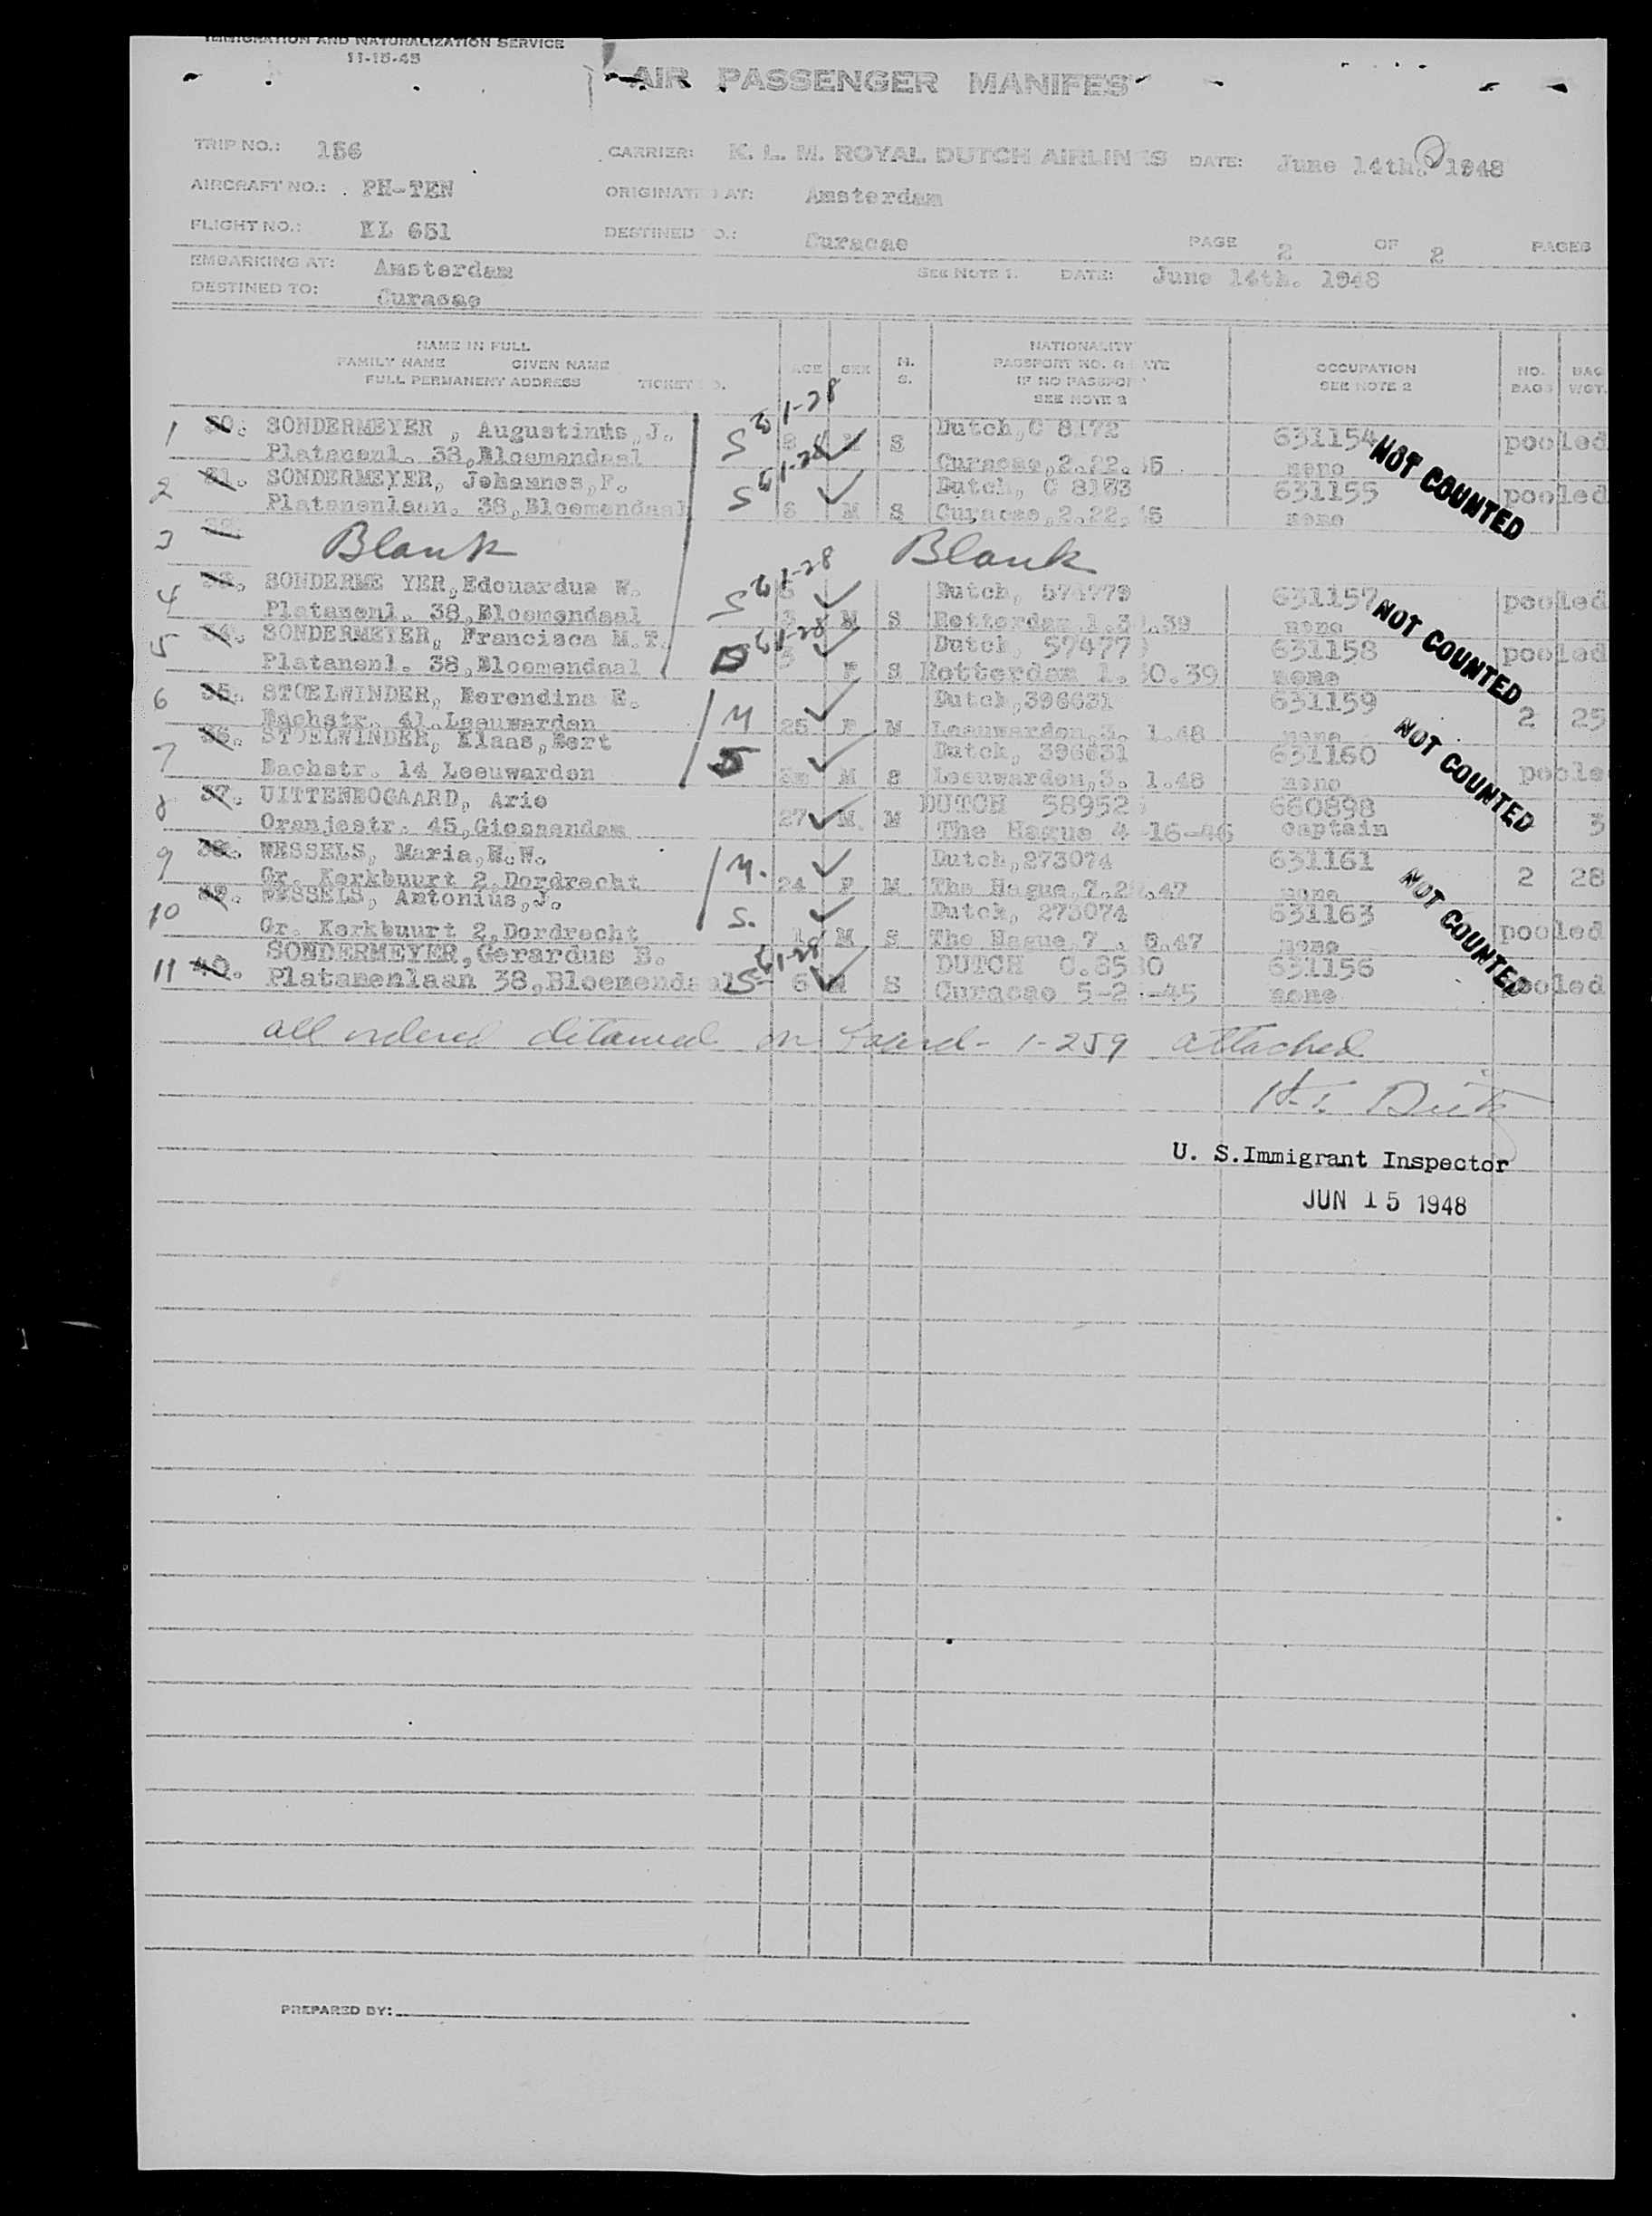 IMMIGRATION AND NATURALIZATION SERVICE
11-15-45
AIR PASSENGER MANIFES
TRIP NO.: 156 CARRIER: K. L. M. ROYAL DUTCH AIRLINES DATE: June 14th. 1948
AIRCRAFT NO.: PH-TEN ORIGINAT AT: Amsterdam
FLIGHT NO.: KL 651 DESTINED O.: Curacao PAGE 2 OF 2 PAGES
EMBARKING AT: Amsterdam SEE NOTE 1. DATE: June 14th. 1948
DESTINED TO: Curacao
NAME IN FULL
FAMILY NAME GIVEN NAME
FULL PERMANENT ADDRESS TICKET
AGE SEX M. S.
NATIONALITY
PASSPORT NO.
IF NO PASSPOR
SEE NOTE 3
OCCUPATION
SEE NOTE 2
NO. BAGS BAG WGT.
1 30. SONDERMEYER , Augustinus, J. S 1-28 Dutch, C 8172 631154 pooled
Platanenl. 38, Bloemendaal M S Curacao, 2.22. 45 none
2 31. SONDERMEYER, Johannes, F. S 1-28 Dutch, C 8173 631155 pooled
Platanenlaan. 38, Bloemendaal M S Curacao, 2.22. 45 none
NOT COUNTED
3 32. Blank Blank
4 33. SONDERME YER, Edouardus W. S 1-28 Dutch, 574779 631157 pooled
Platanenl. 38, Bloemendaal 3 M S Rotterdam 1.3 .39 none
5 34. SONDERMEYER, Francisca M.T. S 1-28 Dutch, 57477 631158 pooled
Platanenl. 38, Bloemendaal 3 F S Rotterdam 1. 30.39 none
NOT COUNTED
6 35. STOELWINDER, Berendina E. M Dutch, 396631 631159
Bachstr. 41. Leeuwarden 25 F M Leeuwarden, 3. 1.48 none 2 25
7 36. STOELWINDER, Klaas, Bert S Dutch, 396631 631160
Bachstr. 14 Leeuwarden M S Leeuwarden, 3. 1.48 none poole
NOT COUNTED
8 37. UITTENBOGAARD, Arie DUTCH 58952 660898
Oranjestr. 45, Giessendam 27 M. M The Hague 4 -16-46 captain 3
9 38. WESSELS, Maria, H.W. M. Dutch, 273074 631161
Gr. Kerkbuurt 2, Dordrecht 24 F M. The Hague, 7.2 .47 none 2 28
10 39. WESSELS, Antonius, J. S. Dutch, 273074 631163
Gr. Kerkbuurt 2, Dordrecht 1 M S The Hague, 7 .47 none pooled
NOT COUNTED
11 40. SONDERMEYER, Gerardus B. 1-28 DUTCH C.85 30 631156
Platanenlaan 38, Bloemendaal S 6 M S Curacao 5-2 -45 none pooled
all ordered detained on board - 1-259 attached
U. S.Immigrant Inspector
JUN 15 1948
PREPARED BY: